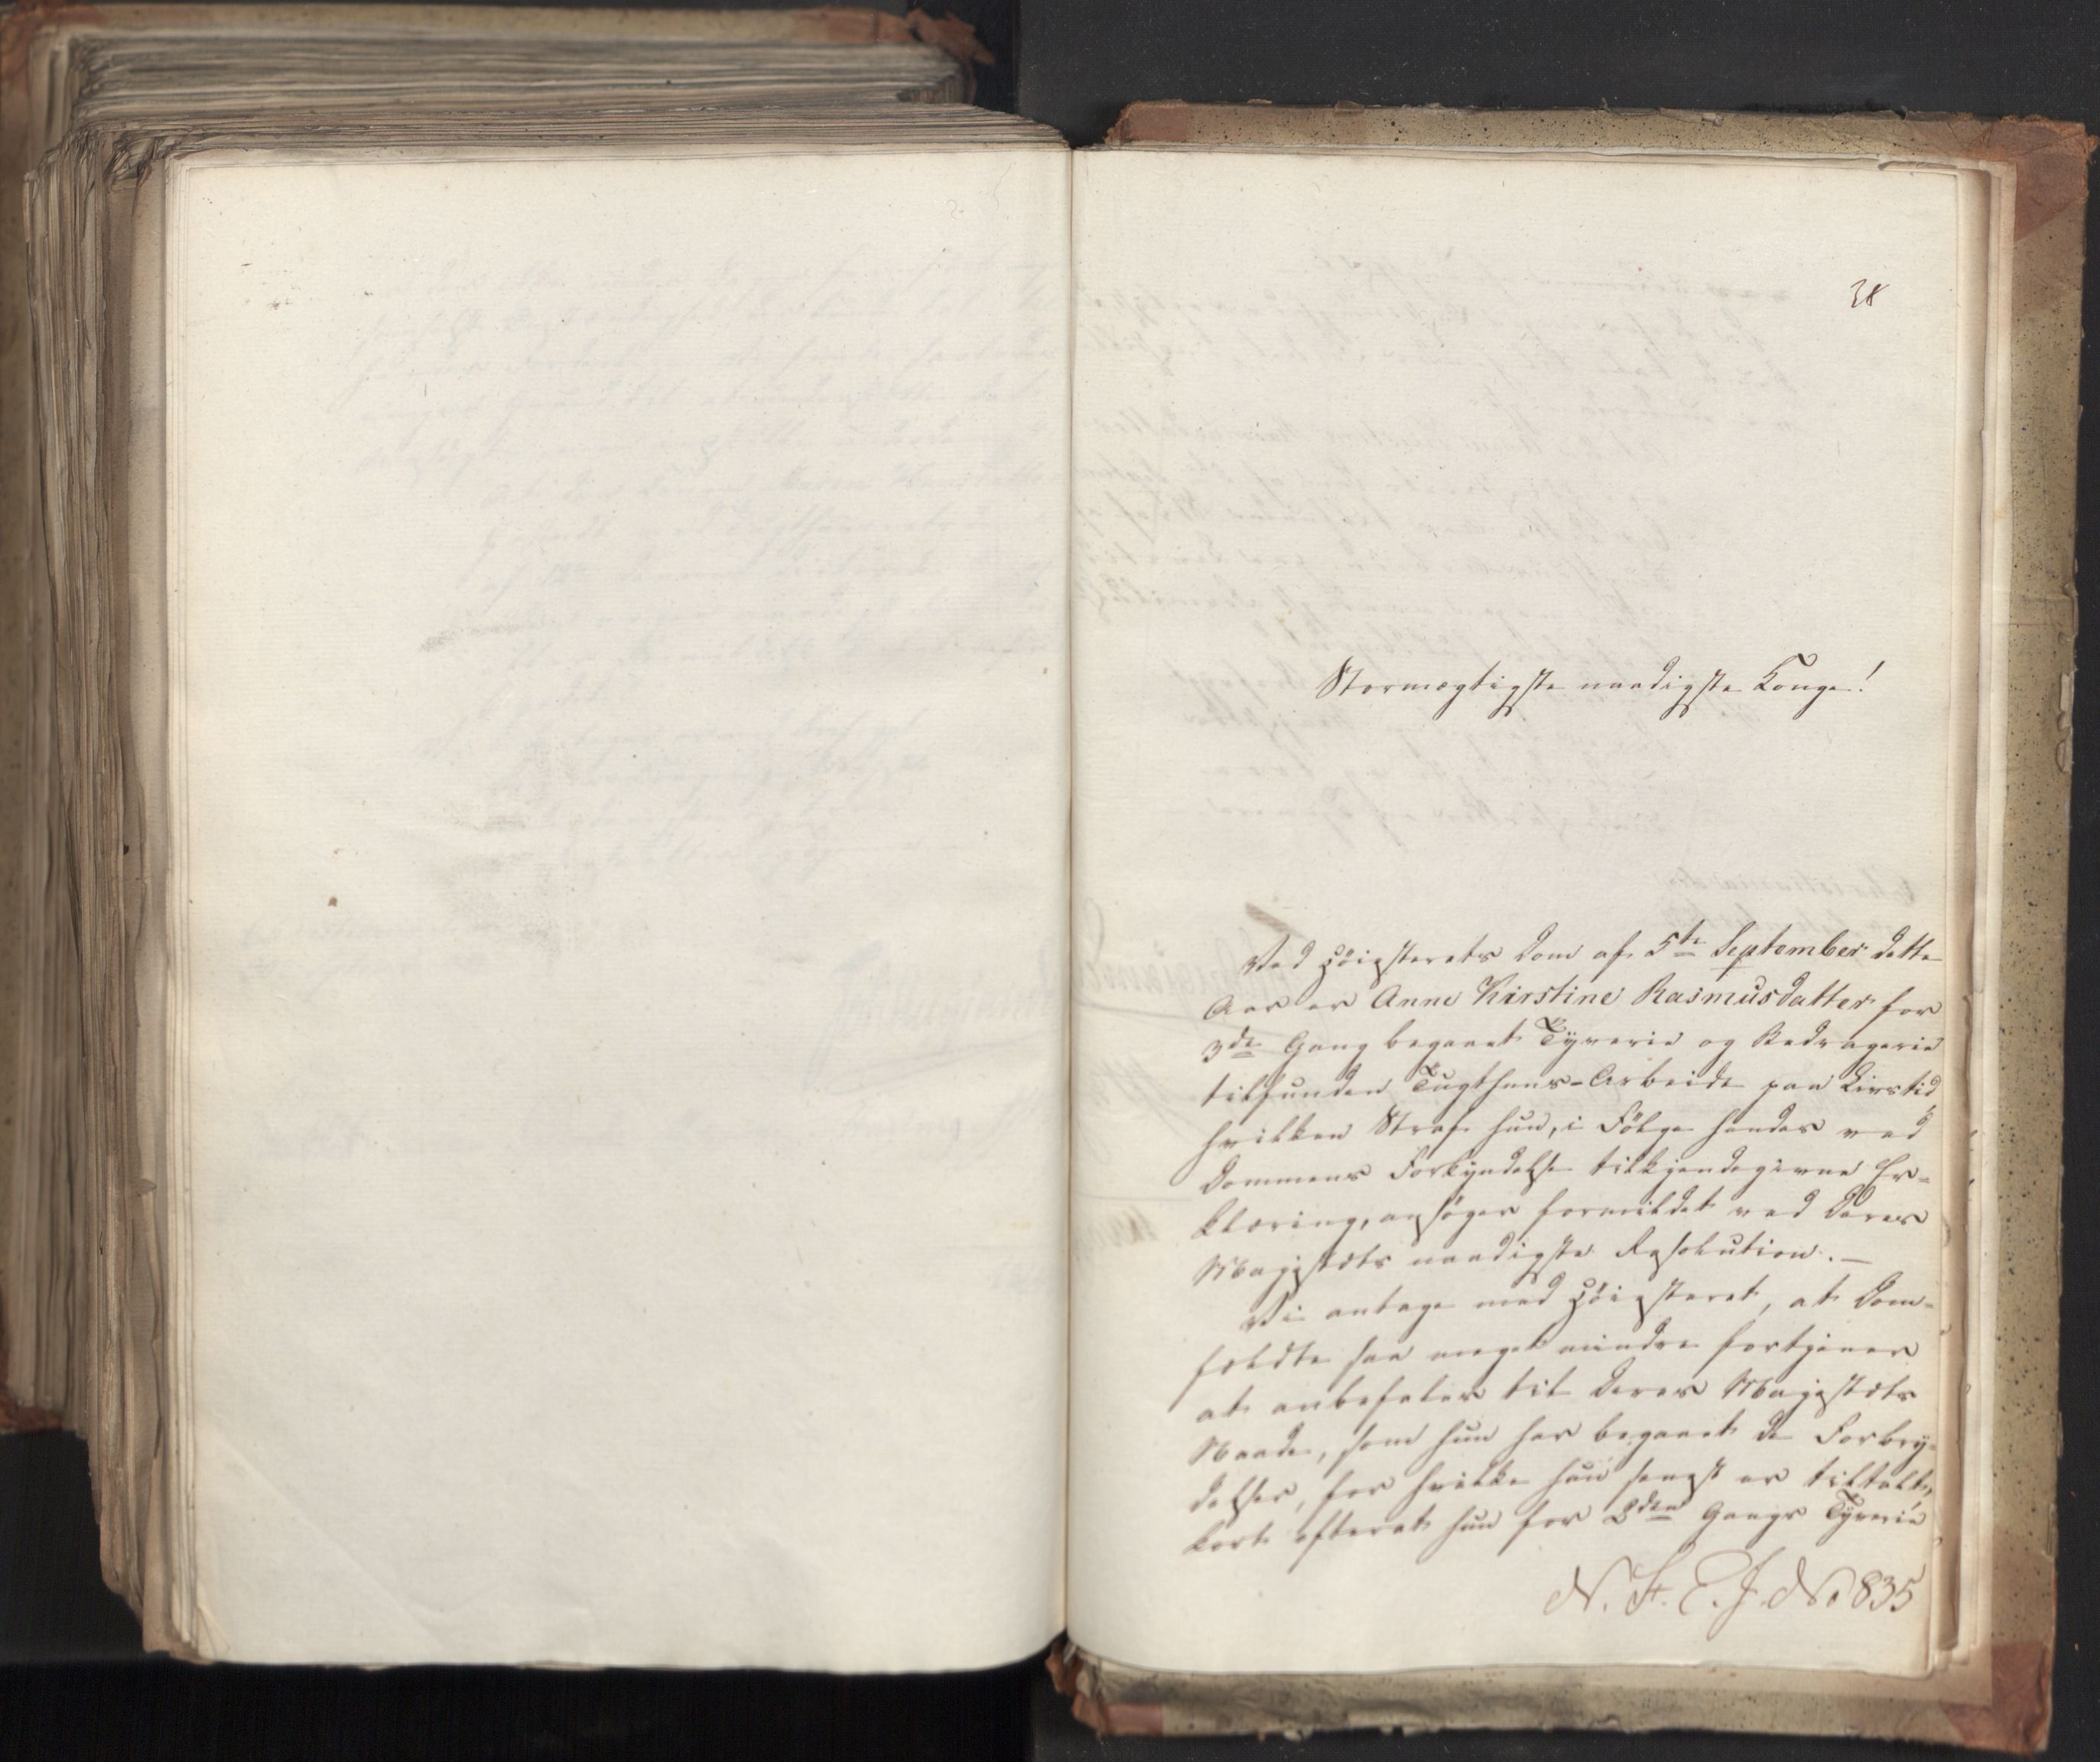 38
Stormægtigste naadigste Konge!
Ved Höiesterets Dom af 5te September dette
Aar er Anne Kirstine Rasmusdatter for
3die Gang begaaet Tyverie og Bedragerie
tilfunden Tugthuus-Arbeide paa Livstid,
hvilken Straf hun, i Fölge hendes ved
Dommens Forkyndelse tilkjendegivne Er-
klæring, ansöger formildet ved Deres
Majestæts naadigste Resolution. —
Vi antage med Höiesteret, at Dom-
fældte saa meget mindre fortjener
at anbefales til Deres Majestæts
Naade, som hun har begaaet de Forbry-
delser, for hvilke hun senest er tiltalt,
kort efterat hun for 2den Gangs Tyverie
No 835